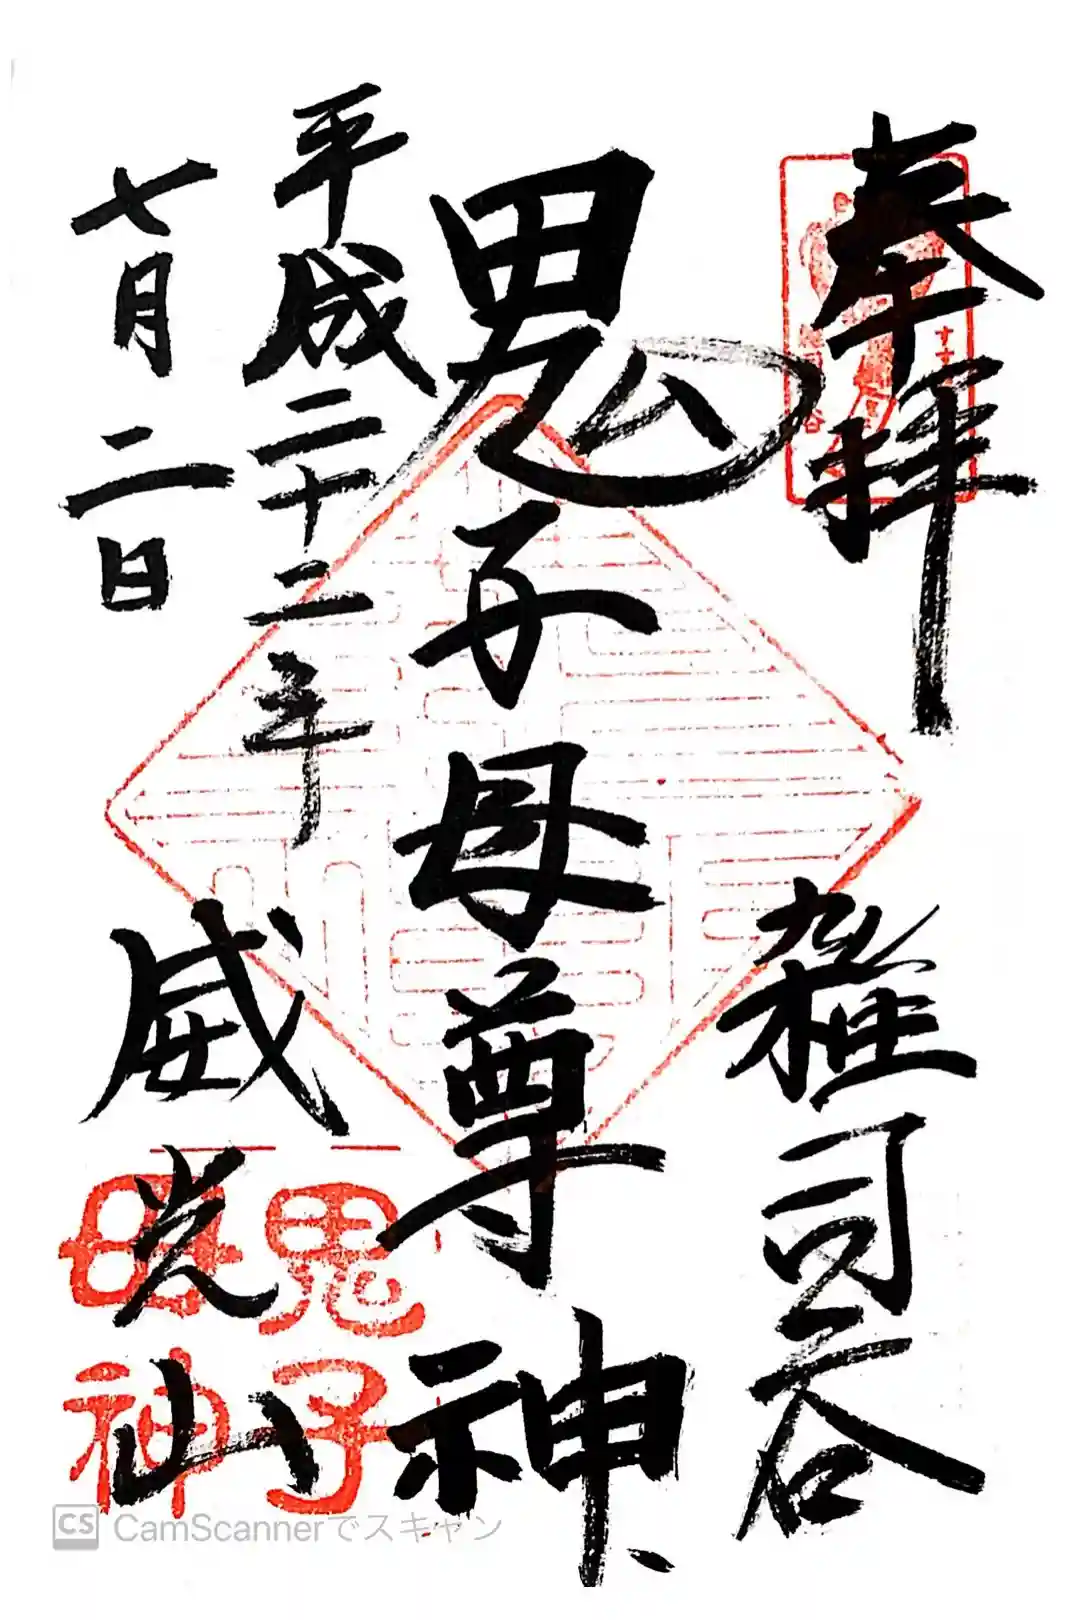 奉拝
雑司谷
鬼子母尊神
平成二十二年
七月二日
威光山
鬼子
母神
CS CamScannerでスキャン